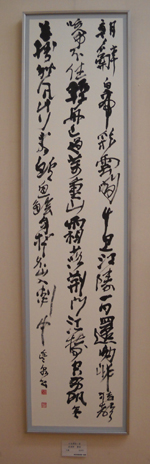 朝辭白帝彩雲間千里江陵一日還兩岸猿聲
啼不住輕舟已過萬重山霜落荊門江樹空布帆無
恙挂秋風此行不為鱸魚鱠自愛名山入剡中